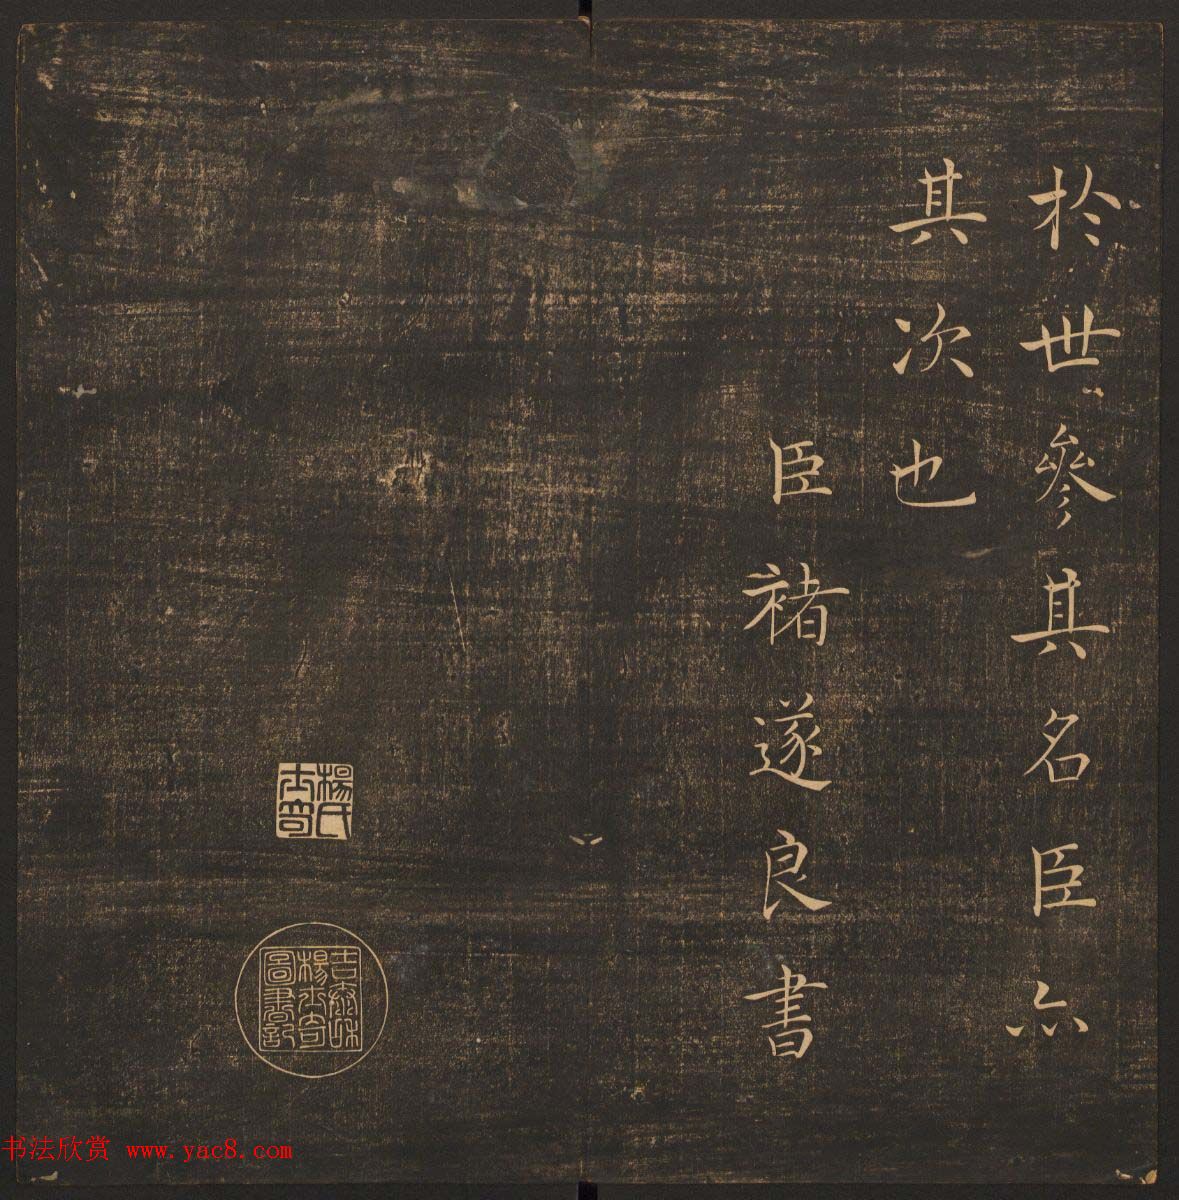 於世參其名臣亦
其次也
臣褚遂良書
楊氏
士奇
吉泰和
楊士奇
圖書記
书法欣赏 www.yac8.com